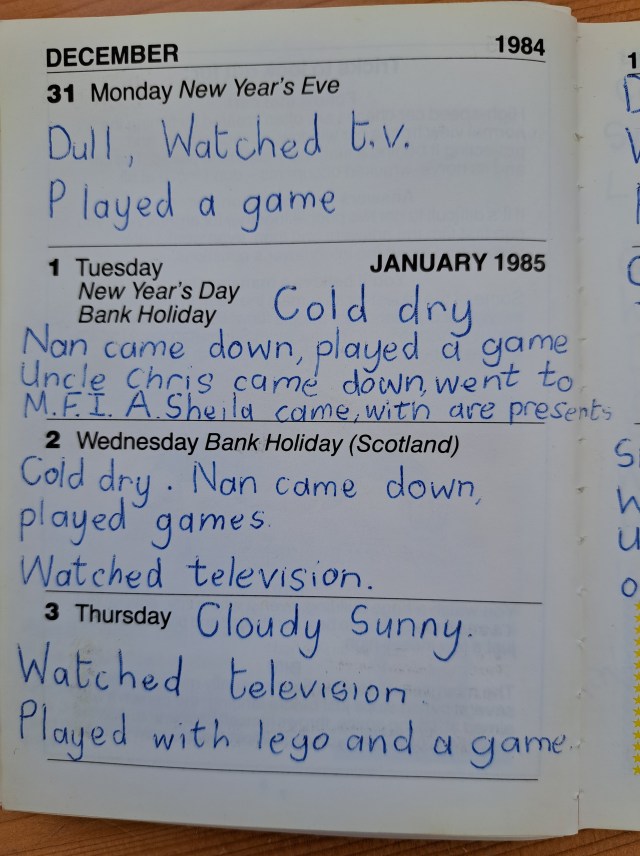 DECEMBER 1984
31 Monday New Year's Eve
Dull, Watched t.v.
Played a game
1 Tuesday JANUARY 1985
New Year's Day
Bank Holiday Cold dry
Nan came down, played a game
Uncle Chris came down, went to
M.F.I. A.Sheila came, with are presents
2 Wednesday Bank Holiday (Scotland)
Cold dry. Nan came down,
played games.
Watched television.
3 Thursday Cloudy Sunny.
Watched television
Played with lego and a game.